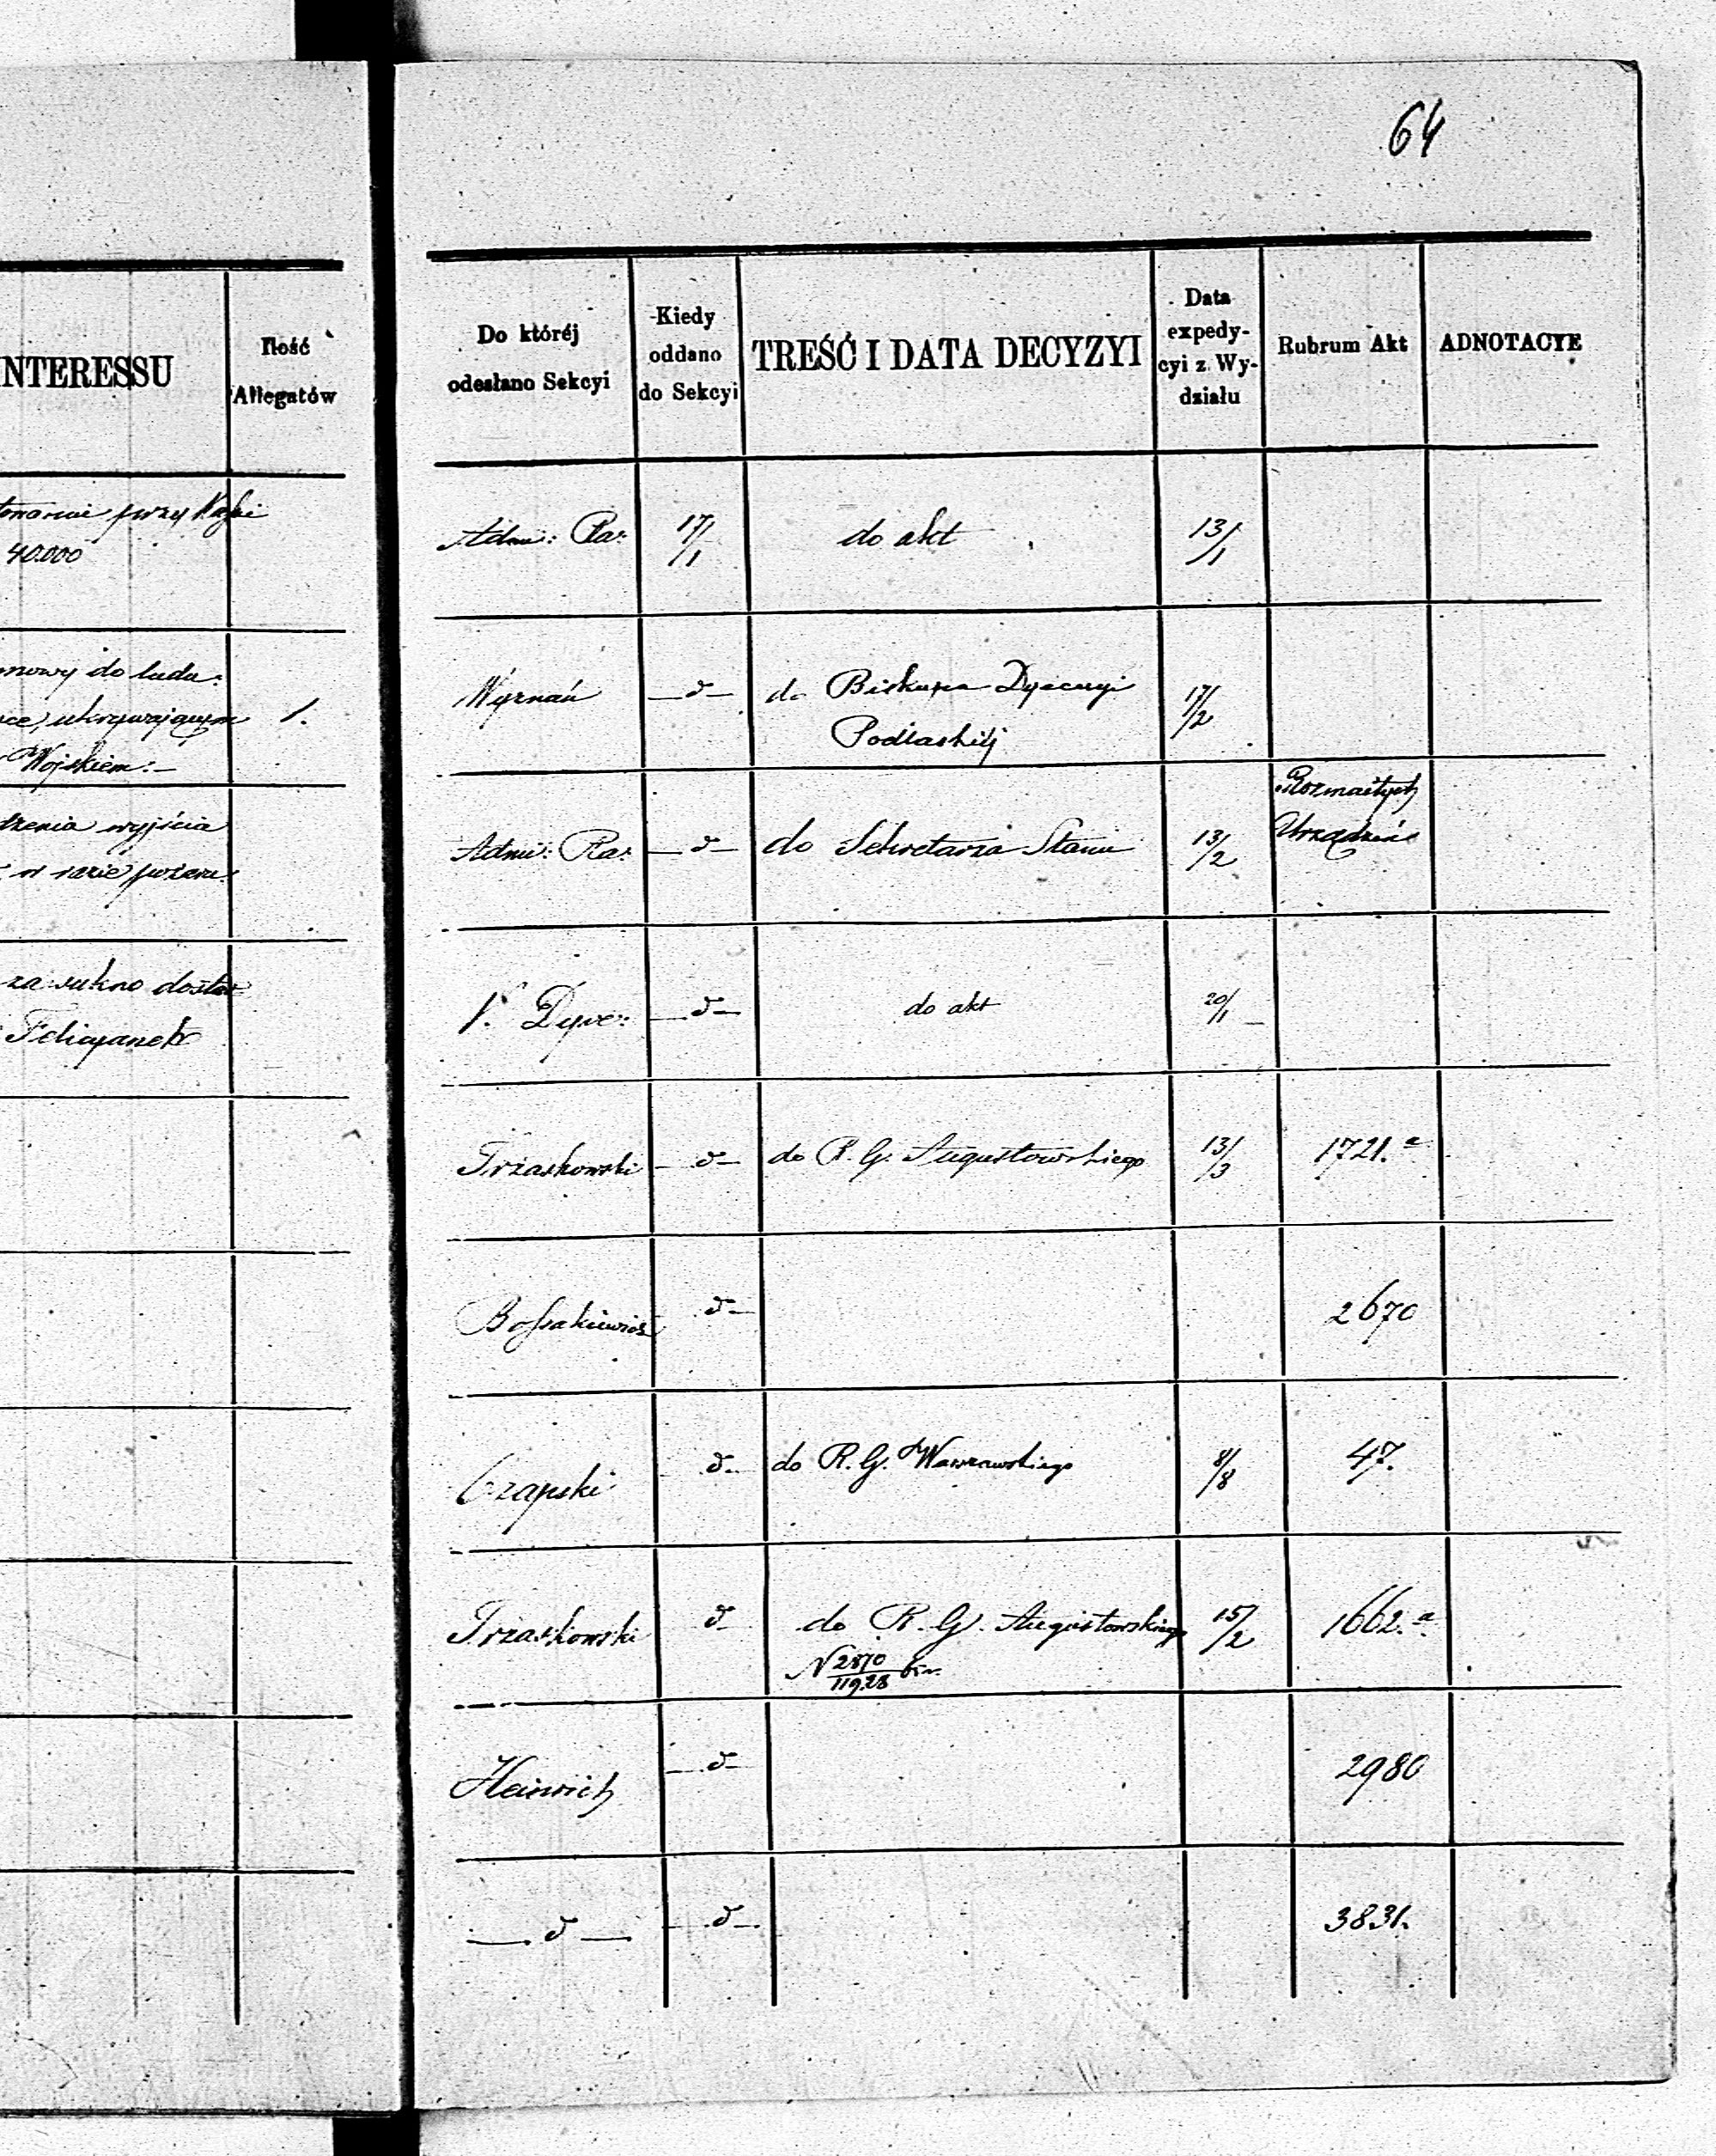 64
NTERESSU
Ilość
Allegatów
przy Kassie
40.000
do ludu:
ukrywającym
1.
Wojskiem:—
wyjścia
w razie pożaru:
za sukno dostar
Felicyanek
Do któréj
odesłano Sekcyi
Kiedy
oddano
do Sekcyi
TREŚĆ I DATA DECYZYI
Data
expedy-
cyi z Wy-
działu
Rubrum Akt
ADNOTACYE
Admi: Ra: 17/1 do akt 13/1
Wyznań —d— do Biskupa Dyecezyi 17/2
Podlaskiéj
Admi: Ra: —d— do Sekretarza Stanu 13/2 Rozmaitych
Urządzeń
V. Dyre: —d— do akt 20/1 —
Trzaskowski —d— do R. G. Augustowskiego 13/3 1721.a
Bossakiewicz d— 2670
Czapski d— do R. G. Warszawskiego 8/8 47.
Trzaskowski d do R. G. Augustowskiego 15/2 1662.a
N 2870/11928
Heinrich —d— 2980
—d— —d— 3831.